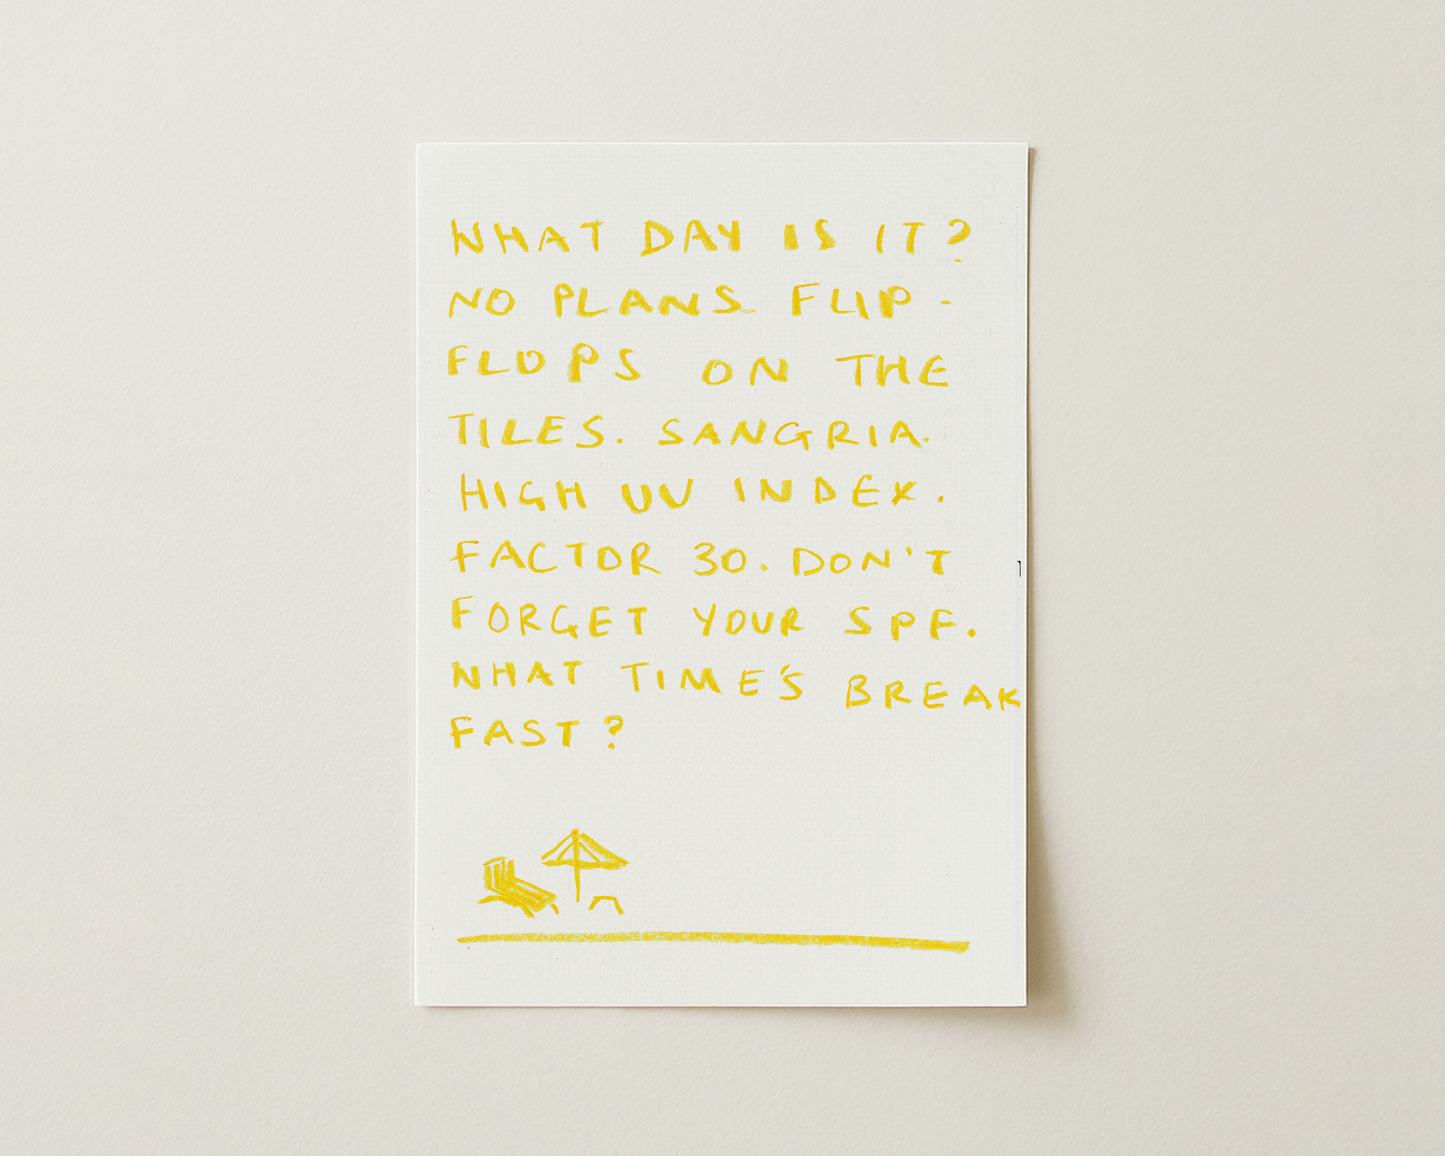 WHAT DAY IS IT?
NO PLANS. FLIP-
FLOPS ON THE
TILES. SANGRIA.
HIGH UV INDEX.
FACTOR 30. DON'T
FORGET YOUR SPF.
WHAT TIME'S BREAK
FAST?